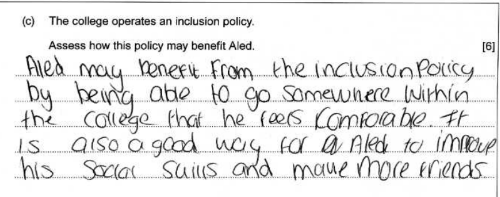 (c) The college operates an inclusion policy.
Assess how this policy may benefit Aled. [6]
Aled may benefit from the inclusion Policy
by being able to go somewhere within
the college that he feels comforable. It
is also a good way for a Aled to improve
his social skills and make more friends